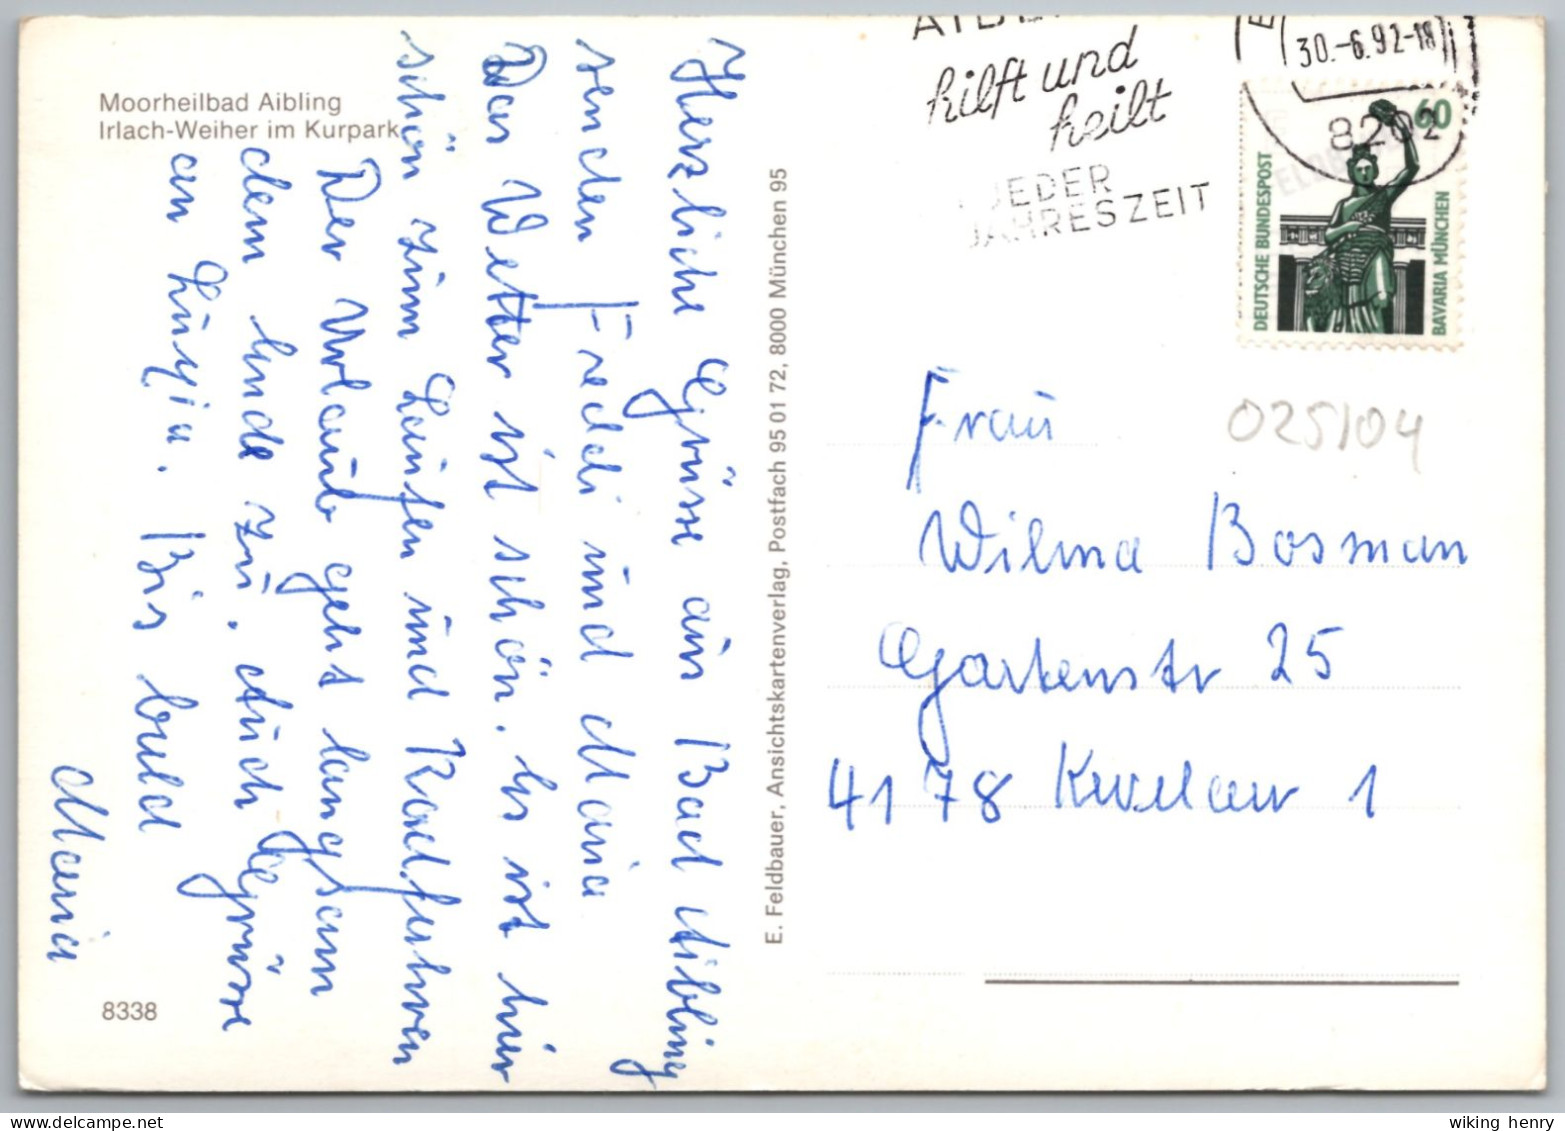 Moorheilbad Aibling
Irlach-Weiher im Kurpark
Herzliche Grüsse aus Bad Aibling
senden Freddi und Maria
Das Wetter ist schön. Es ist hier
schön zum Laufen und Radfahren
Der Urlaub geht langsam
dem Ende zu. Auch Grüsse
an Luzia. Bis bald
Maria
8338
E. Feldbauer, Ansichtskartenverlag, Postfach 95 01 72, 8000 München 95
hilft und
heilt
JEDER
JAHRESZEIT
30.-6.92-18
8202
60
DEUTSCHE BUNDESPOST
BAVARIA MÜNCHEN
025/04
Frau
Wilma Bosman
Gartenstr 25
4178 Kevelaer 1
wiking henry